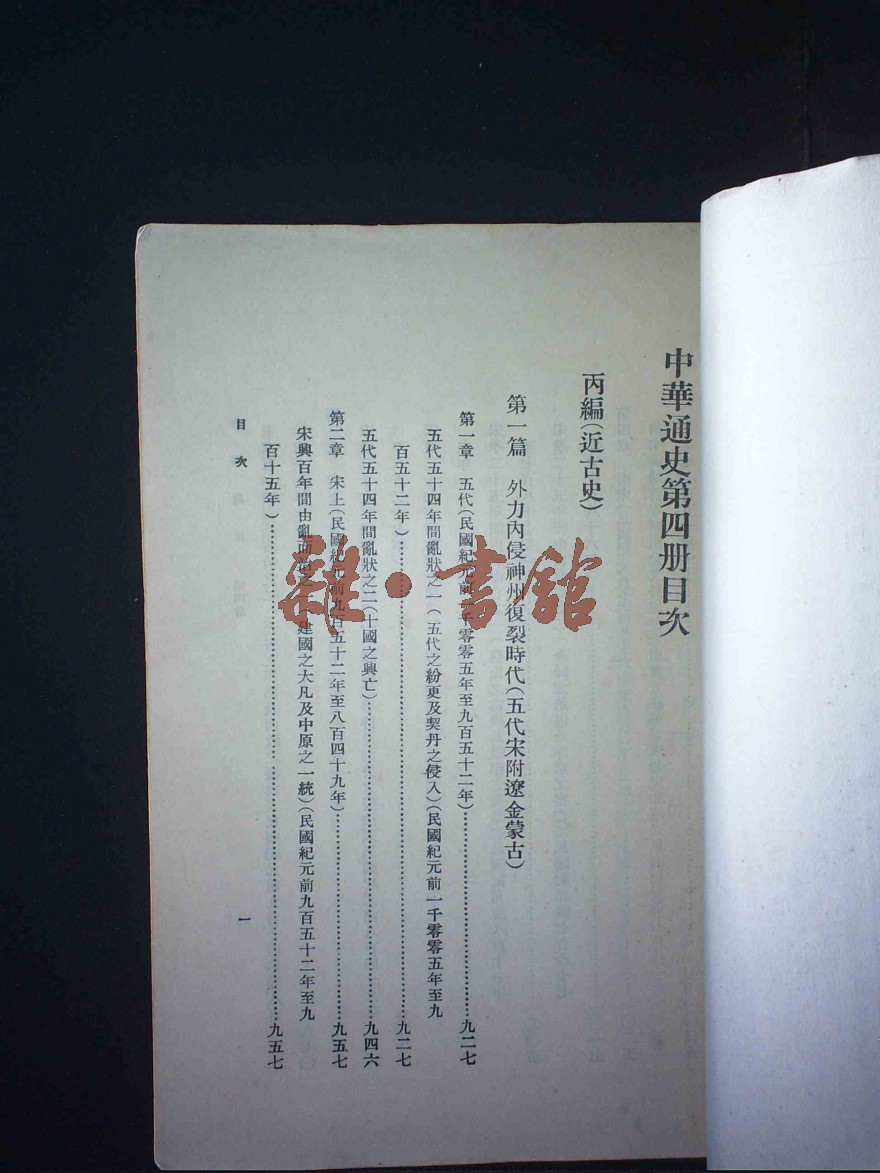 中華通史第四册目次
丙編(近古史)
第一篇 外力內侵神州復裂時代(五代宋附遼金蒙古)
第一章 五代(民國紀元前一千零零五年至九百五十二年)……九二七
五代五十四年間亂狀之一(五代之紛更及契丹之侵入)(民國紀元前一千零零五年至九
百五十二年)……九二七
五代五十四年間亂狀之二(十國之興亡)……九四六
第二章 宋上(民國紀元前九百五十二年至八百四十九年)……九五七
宋興百年間由亂而治之一(建國之大凡及中原之一統)(民國紀元前九百五十二年至九
百十五年)……九五七
目次 一
雜·書館